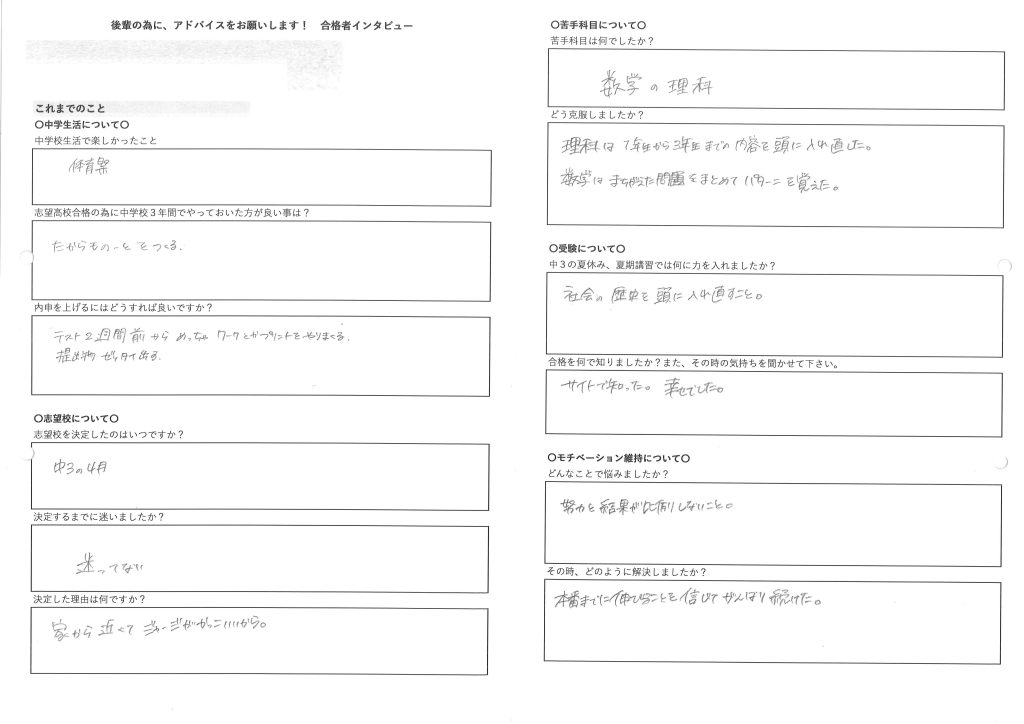 後輩の為に、アドバイスをお願いします！　合格者インタビュー
これまでのこと
〇中学生活について〇
中学校生活で楽しかったこと
体育祭
志望高校合格の為に中学校３年間でやっておいた方が良い事は？
たからものーとをつくる.
内申を上げるにはどうすれば良いですか？
テスト2週間前からめっちゃワークとかプリントをやりまくる.
提出物ゼッタイ出る.
〇志望校について〇
志望校を決定したのはいつですか？
中3の4月
決定するまでに迷いましたか？
迷ってない
決定した理由は何ですか？
家から近くてジャージがかっこいいから。
〇苦手科目について〇
苦手科目は何でしたか？
数学の理科
どう克服しましたか？
理科は1年生から3年生までの内容を頭に入れ直した。
数学はまちがえた問題をまとめてパターンを覚えた。
〇受験について〇
中３の夏休み、夏期講習では何に力を入れましたか？
社会の歴史を頭に入れ直すこと。
合格を何で知りましたか？また、その時の気持ちを聞かせて下さい。
サイトで知った。幸せでした。
〇モチベーション維持について〇
どんなことで悩みましたか？
努力と結果が比例しないこと。
その時、どのように解決しましたか？
本番までに伸びることを信じてがんばり続けた。